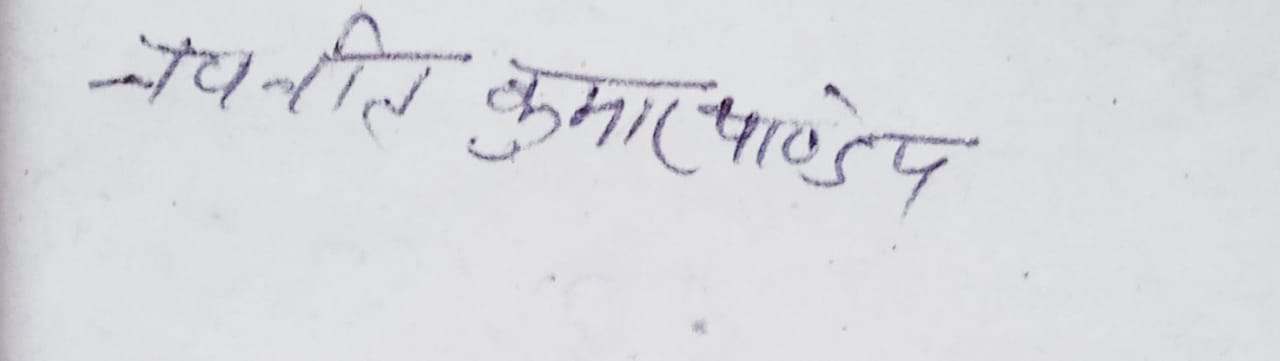 नवनीत कुमार पाण्डेय